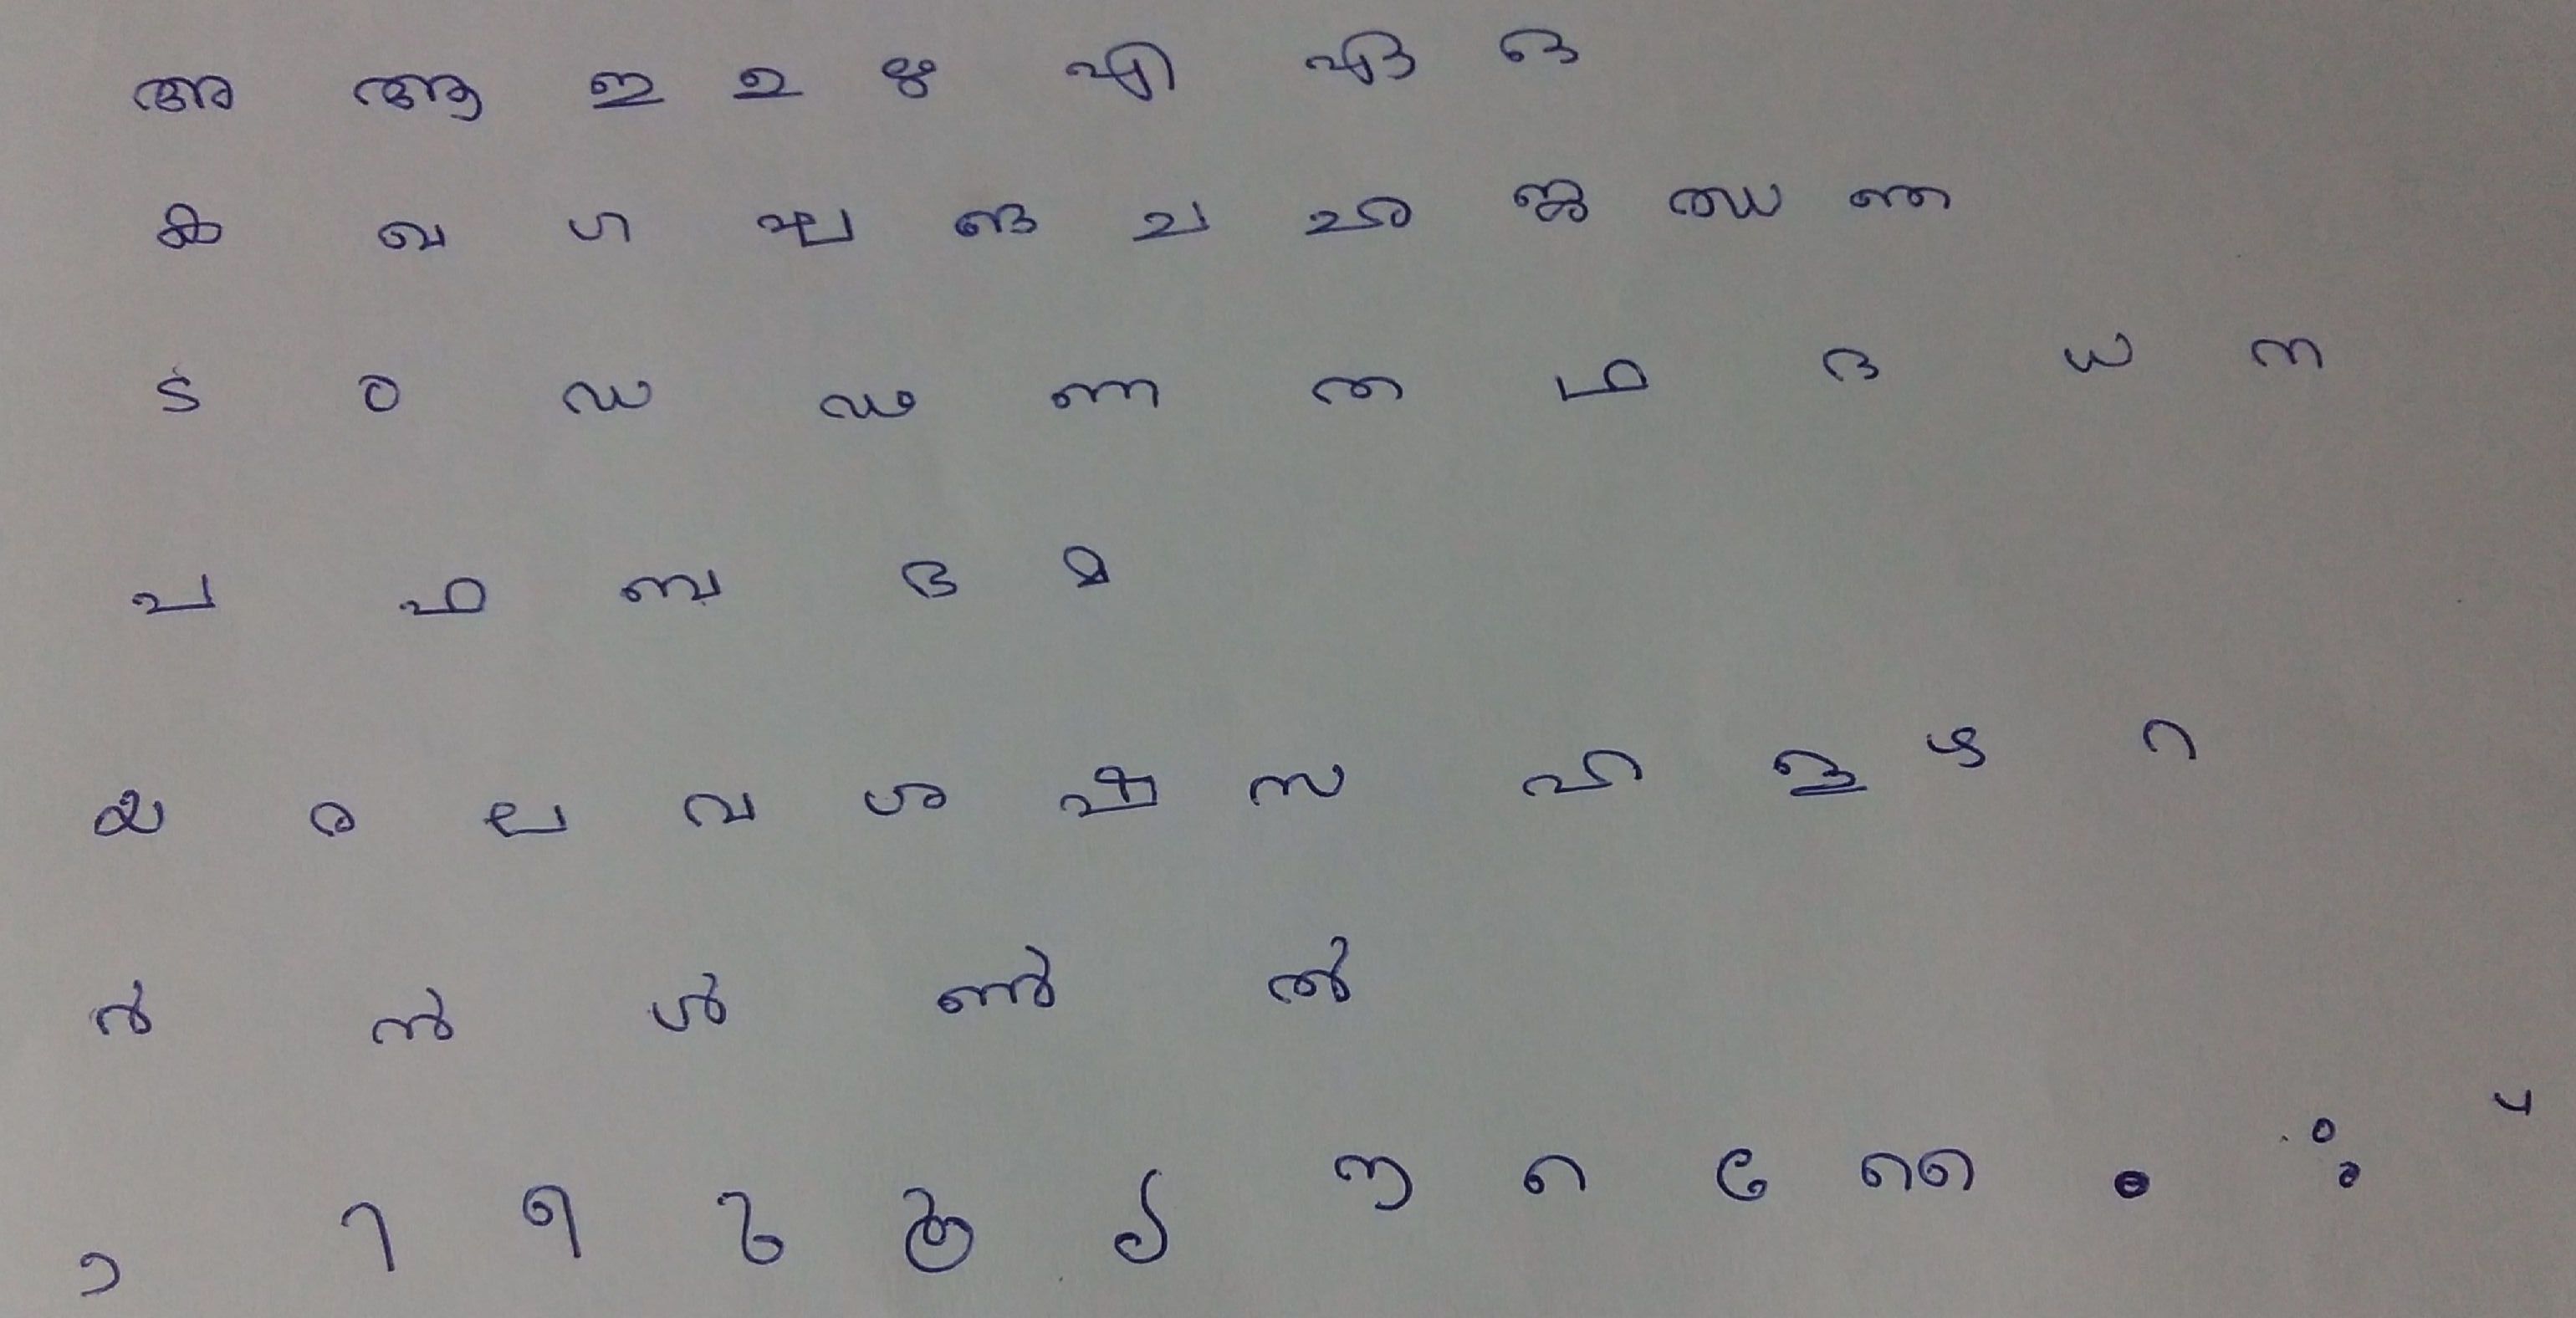 അ ആ ഇ ഉ ഋ എ ഏ ഒ
ക ഖ ഗ ഘ ങ ച ഛ ജ ഝ ഞ
ട ഠ ഡ ഢ ണ ത ഥ ദ ധ ന
പ ഫ ബ ഭ മ
യ ര ല വ ശ ഷ സ ഹ ള ഴ റ
ൽ ൻ ൾ ൺ ൽ
ാ ി ീ ു ൂ ൃ െ േ ൈ ം ഃ ്